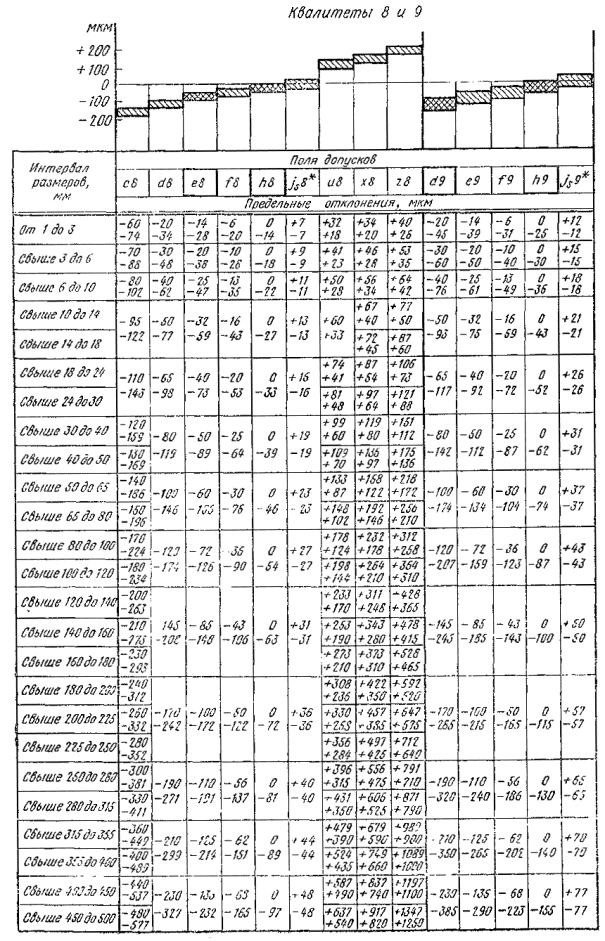 Квалитеты 8 и 9
мкм
+200
+100
0
-100
-200
Интервал размеров, мм
Поля допусков
c8 d8 e8 f8 h8 js8* u8 x8 z8 d9 e9 f9 h9 js9*
Предельные отклонения, мкм
От 1 до 3
-60 -20 -14 -6 0 +7 +32 +34 +40 -20 -14 -6 0 +12
-74 -34 -28 -20 -14 -7 +18 +20 +26 -45 -39 -31 -25 -12
Свыше 3 до 6
-70 -30 -20 -10 0 +9 +41 +46 +53 -30 -20 -10 0 +15
-88 -48 -38 -28 -18 -9 +23 +28 +35 -60 -50 -40 -30 -15
Свыше 6 до 10
-80 -40 -25 -13 0 +11 +50 +56 +64 -40 -25 -13 0 +18
-102 -62 -47 -35 -22 -11 +28 +34 +42 -76 -61 -49 -36 -18
Свыше 10 до 14
+67 +77
-95 -50 -32 -16 0 +13 +60 +40 +50 -50 -32 -16 0 +21
Свыше 14 до 18
-122 -77 -59 -43 -27 -13 +33 +72 +87 -93 -75 -59 -43 -21
+45 +60
Свыше 18 до 24
+74 +87 +106
-110 -65 -40 -20 0 +16 +41 +54 +73 -65 -40 -20 0 +26
Свыше 24 до 30
-143 -98 -73 -53 -33 -16 +81 +97 +121 -117 -92 -72 -52 -26
+48 +64 +88
Свыше 30 до 40
-120 +99 +119 +151
-159 -80 -50 -25 0 +19 +60 +80 +112 -80 -50 -25 0 +31
Свыше 40 до 50
-130 -119 -89 -64 -39 -19 +109 +136 +175 -142 -112 -87 -62 -31
-169 +70 +97 +136
Свыше 50 до 65
-140 +133 +168 +218
-186 -100 -60 -30 0 +23 +87 +122 +172 -100 -60 -30 0 +37
Свыше 65 до 80
-150 -146 -76 -46 -23 +148 +192 +256 -174 -134 -104 -74 -37
-196 +102 +146 +210
Свыше 80 до 100
-170 +178 +232 +312
-224 -72 -36 0 +27 +124 +178 +258 -120 -72 -36 0 +43
Свыше 100 до 120
-180 -174 -126 -90 -54 -27 +198 +264 +364 -207 -159 -123 -87 -43
-234 +144 +210 +310
Свыше 120 до 140
-200 +233 +311 +428
-263 +170 +248 +365
Свыше 140 до 160
-210 145 -85 -43 0 +31 +253 +343 +478 -145 -85 -43 0 +50
-208 -148 -106 -63 -31 +190 +280 +415 -245 -185 -143 -100 -50
Свыше 160 до 180
-230 +273 +373 +528
-293 +210 +310 +465
Свыше 180 до 200
-240 +308 +422 +592
-312 +236 +350 +520
Свыше 200 до 225
-260 -170 -100 -50 0 +36 +330 +457 +647 -170 -100 -50 0 +57
-332 -242 -172 -122 -72 -36 +385 +575 -285 -215 -165 -115 -57
Свыше 225 до 250
-280 +356 +497 +712
-352 +284 +425 +640
Свыше 250 до 280
-300 +396 +556 +791
-381 -190 -110 -56 0 +40 +315 +475 +710 -190 -110 -56 0 +65
Свыше 280 до 315
-330 -271 -191 -137 -81 -40 +431 +606 +871 -320 -240 -186 -130 -65
-411 +350 +525 +790
Свыше 315 до 355
-360 +479 +679 +989
-449 -210 -125 -62 0 +44 +390 +590 +900 -210 -125 -62 0 +70
Свыше 355 до 400
-400 -299 -214 -151 -89 -44 +524 +749 +1089 -350 -265 -202 -140 -70
-489 +435 +660 +1000
Свыше 400 до 450
-440 +587 +837 +1197
-537 -230 -135 -68 0 +48 +490 +740 +1100 -230 -135 -68 0 +77
Свыше 450 до 500
-480 -327 -232 -165 -97 -48 +637 +917 +1347 -385 -290 -223 -155 -77
-577 +540 +820 +1250